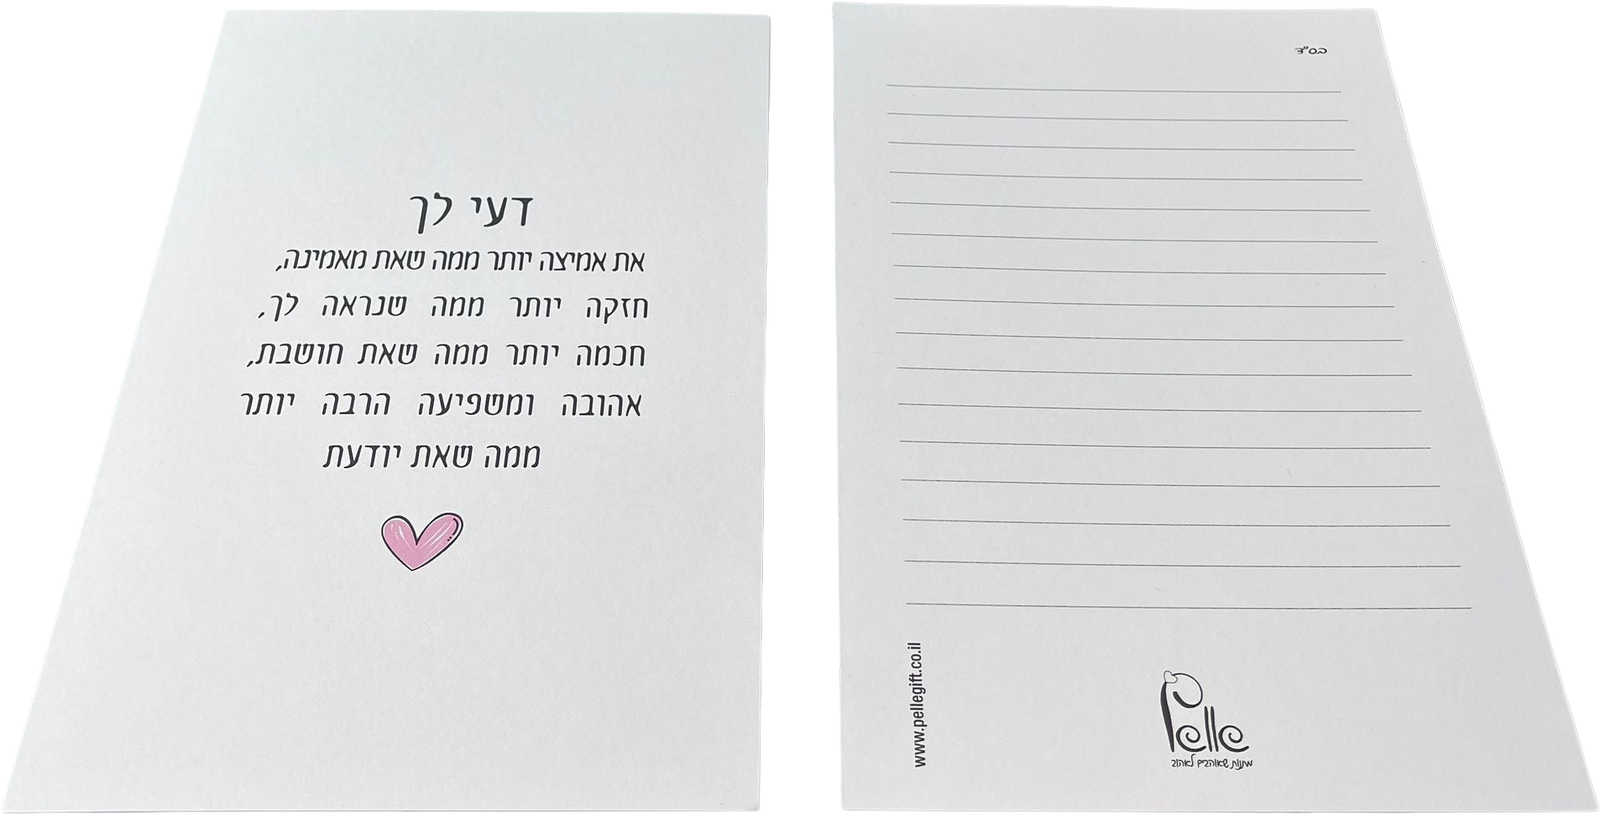 דעי לך
את אמיצה יותר ממה שאת מאמינה,
חזקה יותר ממה שנראה לך,
חכמה יותר ממה שאת חושבת,
אהובה ומשפיעה הרבה יותר
ממה שאת יודעת
בס"ד
www.pellegift.co.il
Pelle
מתנות שאוהבים לאהוב